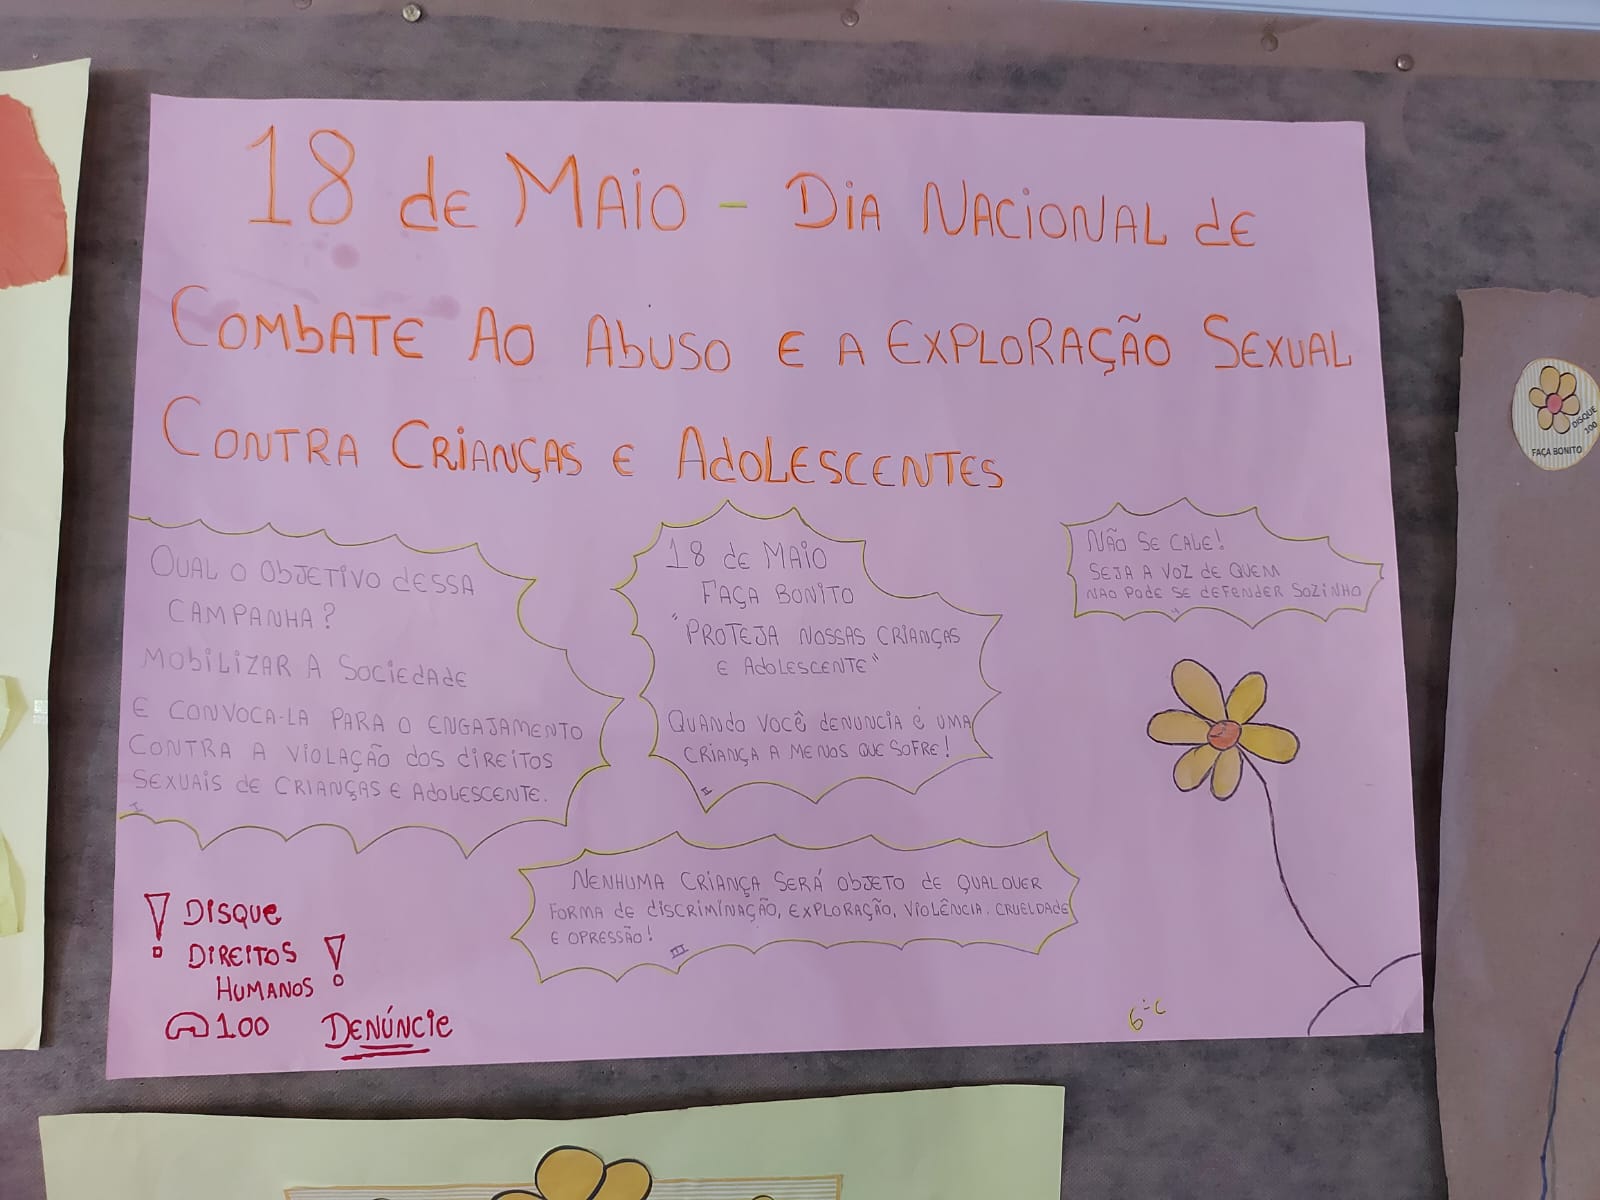 18 de MAiO - DiA NACiONAL dE
COMbATE AO AbUSO E A EXPLORAÇÃO SEXUAL
CONTRA CRiANÇAS E AdOLESCENTES
QUAL O ObJETiVO dESSA
CAMPANHA?
MObiLiZAR A SOCiEdAdE
E CONVOCA-LA PARA O ENGAJAMENTO
CONTRA A ViOLAÇÃO dOS diREiTOS
SEXUAiS dE CRiANÇAS E AdOLESCENTE.
I
18 dE MAiO
FAÇA BONiTO
"PROTEJA NOSSAS CRiANÇAS
E AdOLESCENTE"
QUANDO VOCÊ dENUNCiA É UMA
CRiANÇA A MENOS QUE SOFRE!
II
NÃO SE CALE!
SEJA A VOZ dE QUEM
NÃO POdE SE dEFENdER SOZiNHO
NENHUMA CRiANÇA SERÁ ObJETO dE QUALQUER
FORMA dE diSCRiMiNAÇÃO, EXPLORAÇÃO, ViOLÊNCiA. CRUELDAdE
E OPRESSÃO!
III
! DiSQUE
DiREiTOS !
HUMANOS
100 DENÚNCiE
6-C
DISQUE
100
FAÇA BONITO